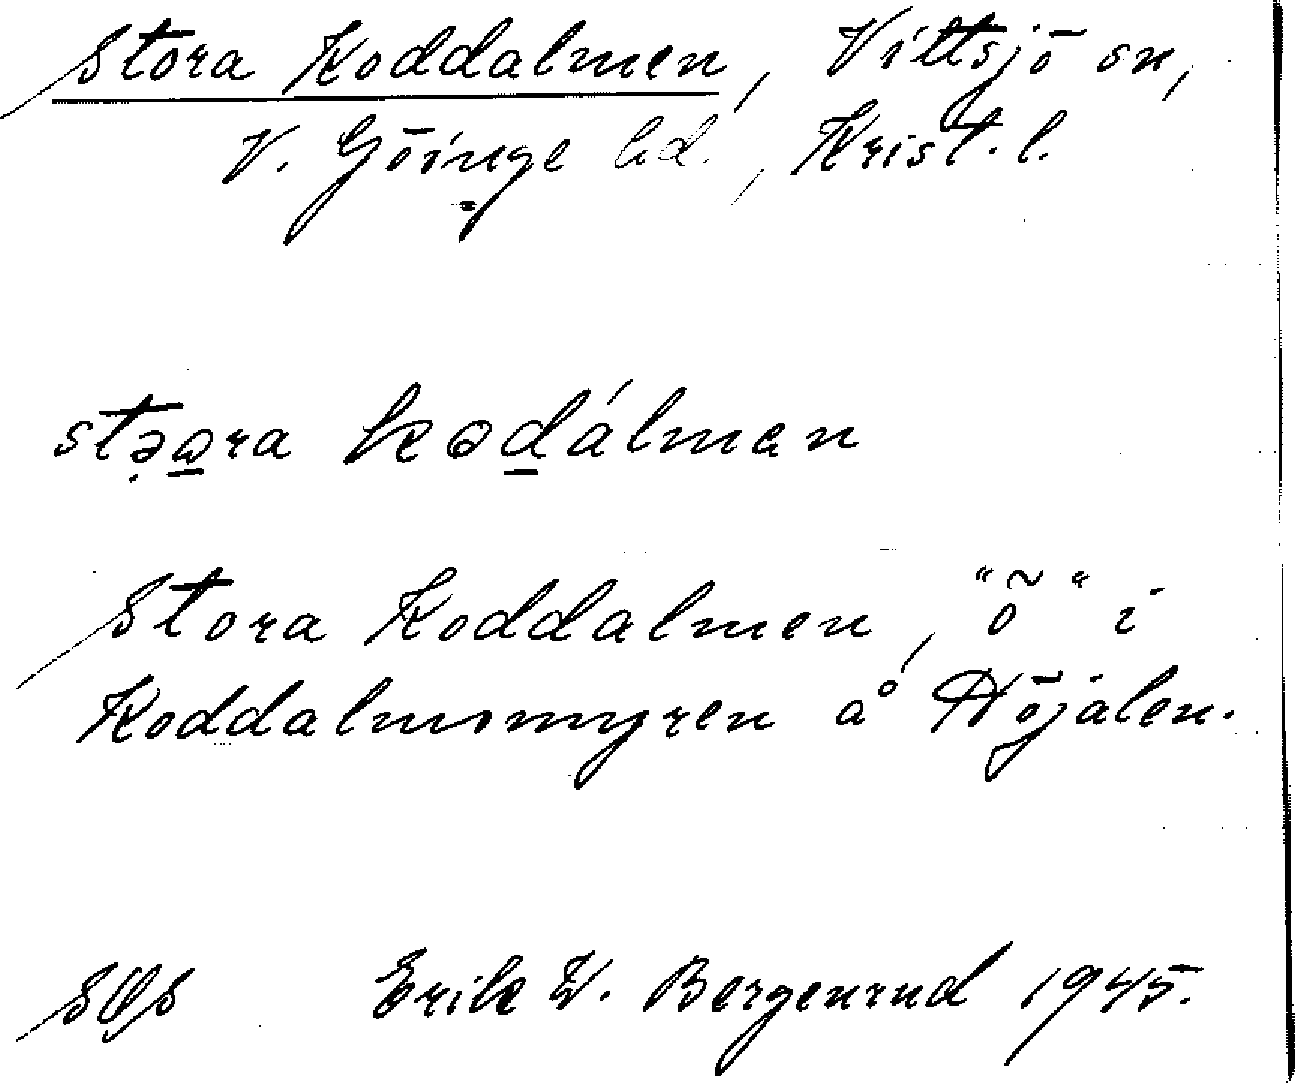 Stora Koddalmen, Vittsjö sn,
V. Göinge hd., Krist. l.
stəωra kodálmen
Stora Koddalmen, "ö" i
Koddalmomyren å Höjalen.
Erik W. Bergenrud 1945.